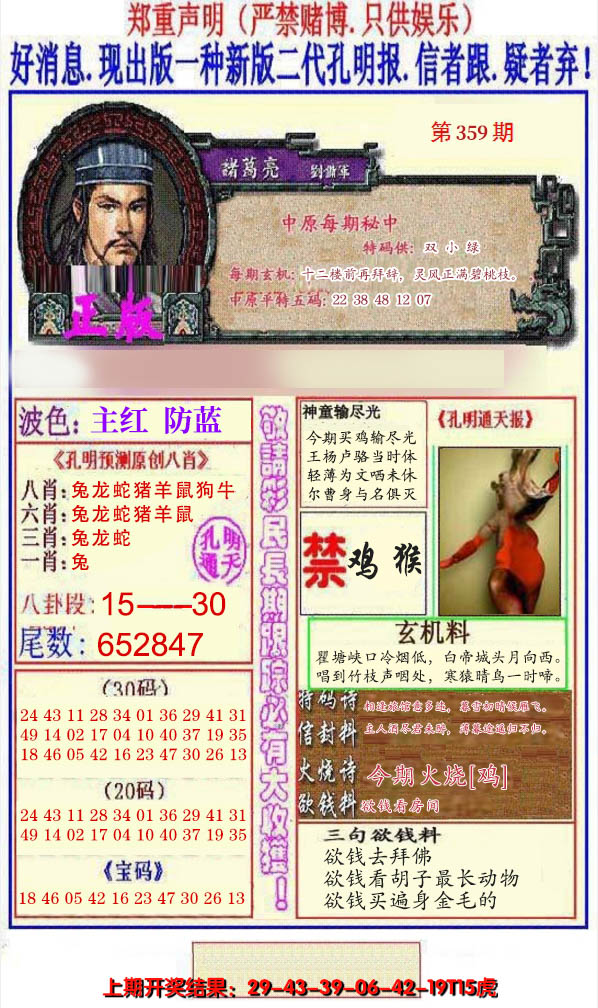 郑重声明（严禁赌博.只供娱乐）
好消息.现出版一种新版二代孔明报.信者跟.疑者弃！
第359期
諸葛亮
中原每期秘中
特码供：双 小 绿
每期玄机：十二楼前再拜辞，灵风正满碧桃枝。
中原平特五码：22 38 48 12 07
正版
波色：主红 防蓝
《孔明预测原创八肖》
八肖：兔龙蛇猪羊鼠狗牛
六肖：兔龙蛇猪羊鼠
三肖：兔龙蛇
一肖：兔
孔明
通天
八卦段：15——30
尾数：652847
（30码）
24 43 11 28 34 01 36 29 41 31
49 14 02 17 04 10 40 37 19 35
18 46 05 42 16 23 47 30 26 13
（20码）
24 43 11 28 34 01 36 29 41 31
49 14 02 17 04 10 40 37 19 35
《宝码》
18 46 05 42 16 23 47 30 26 13
敬請彩民長期跟踪必有大收獲！
神童输尽光
今期买鸡输尽光
王杨卢骆当时体
轻薄为文哂未休
尔曹身与名俱灭
《孔明通天报》
禁 鸡 猴
玄机料
瞿塘峡口冷烟低，白帝城头月向西。
唱到竹枝声咽处，寒猿晴鸟一时啼。
特码诗 相逢旅馆意多违，暮雪初晴候雁飞。
信封料 主人酒尽君未醉，薄暮途遥归不归。
火烧诗 今期火烧[鸡]
欲钱料 欲钱看房间
三句欲钱料
欲钱去拜佛
欲钱看胡子最长动物
欲钱买遍身金毛的
上期开奖结果：29-43-39-06-42-19T15虎